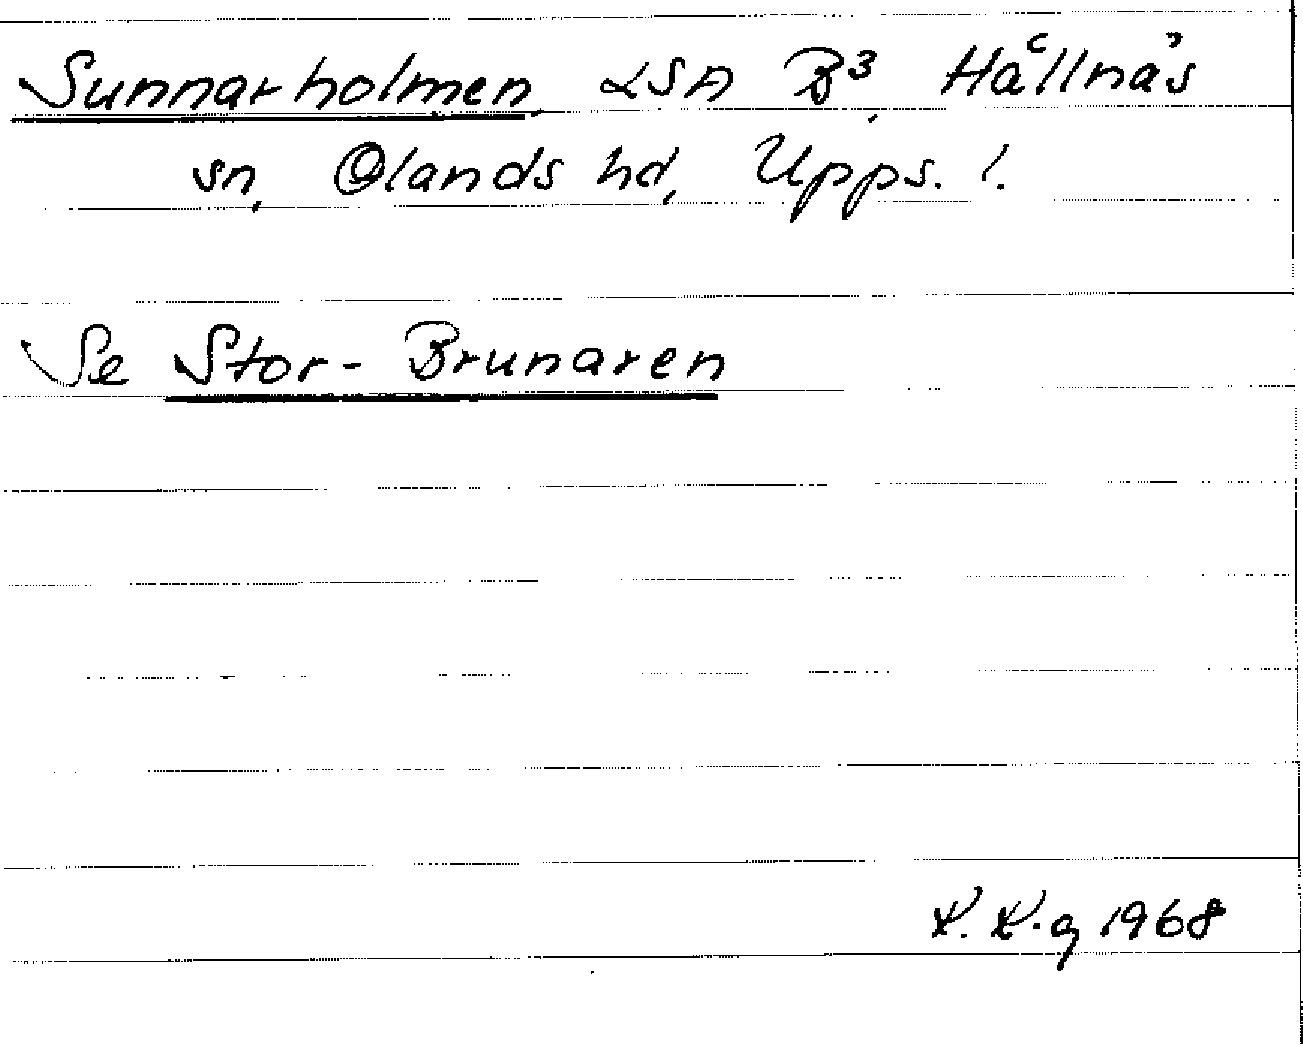 Sunnarholmen, LSA B3, Hållnäs
sn, Olands hd, Upps. l.
Se Stor-Brunaren
K. K-g 1968